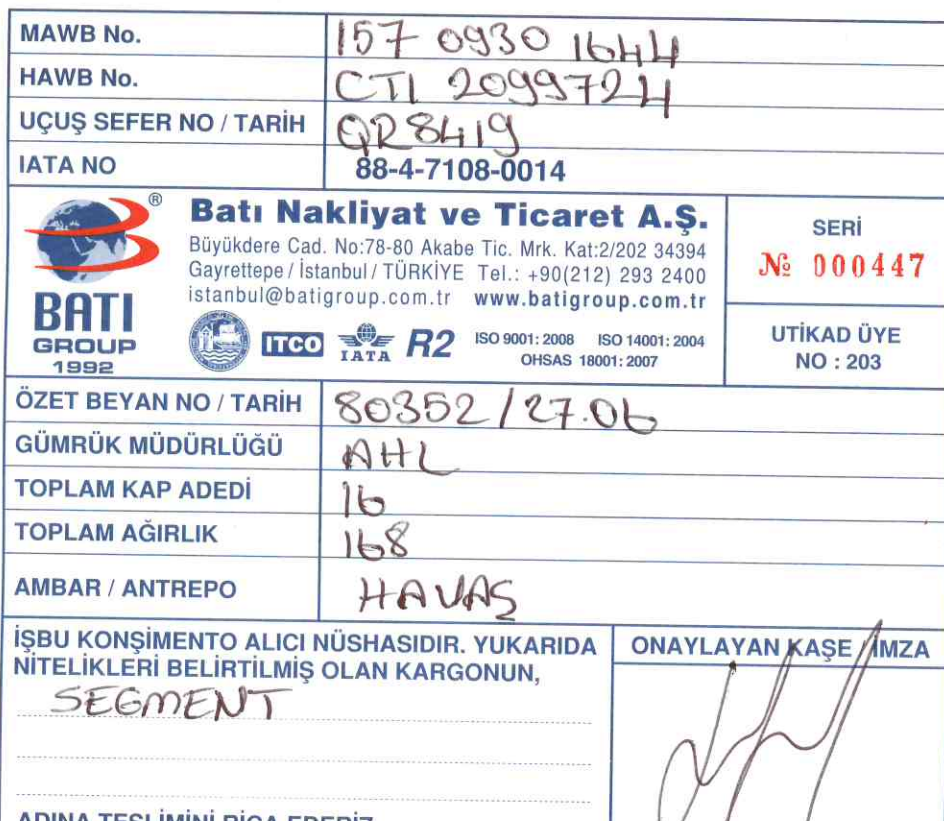 MAWB No. 157 0930 1644
HAWB No. CTI 2099724
UÇUŞ SEFER NO / TARİH QR8419
IATA NO 88-4-7108-0014
Batı Nakliyat ve Ticaret A.Ş.
Büyükdere Cad. No:78-80 Akabe Tic. Mrk. Kat:2/202 34394
Gayrettepe / İstanbul / TÜRKİYE Tel.: +90(212) 293 2400
istanbul@batigroup.com.tr www.batigroup.com.tr
BATI
GROUP
1992
ITCO IATA R2 ISO 9001: 2008 ISO 14001: 2004
OHSAS 18001: 2007
SERİ
№ 000447
UTİKAD ÜYE
NO : 203
ÖZET BEYAN NO / TARİH 80352/27.06
GÜMRÜK MÜDÜRLÜĞÜ AHL
TOPLAM KAP ADEDİ 16
TOPLAM AĞIRLIK 168
AMBAR / ANTREPO HAVAŞ
İŞBU KONŞİMENTO ALICI NÜSHASIDIR. YUKARIDA
NİTELİKLERİ BELİRTİLMİŞ OLAN KARGONUN,
SEGMENT
ADINA TESLİMİNİ RİCA EDERİZ
ONAYLAYAN KAŞE / İMZA